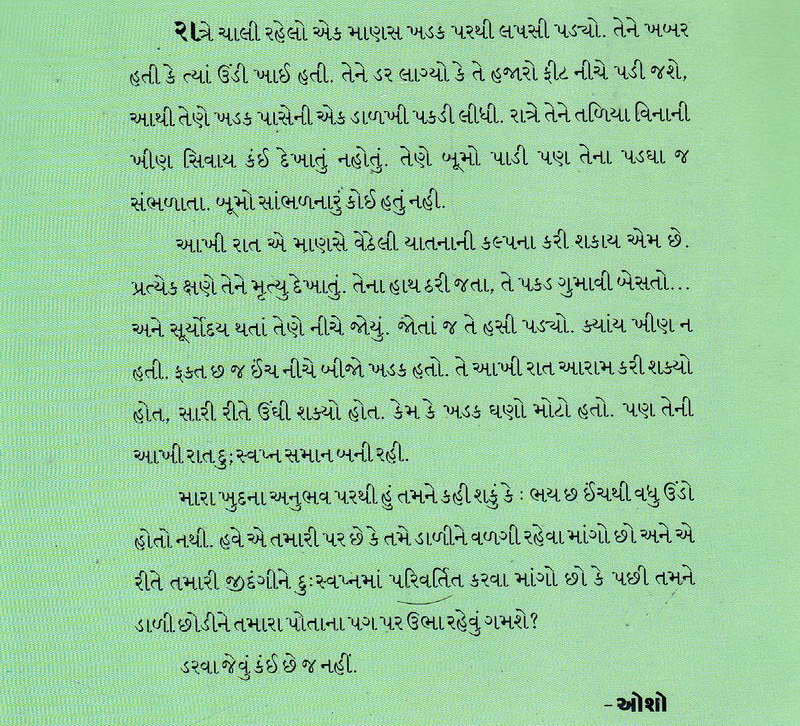 રાત્રે ચાલી રહેલો એક માણસ ખડક પરથી લપસી પડ્યો. તેને ખબર
હતી કે ત્યાં ઉંડી ખાઈ હતી. તેને ડર લાગ્યો કે તે હજારો ફીટ નીચે પડી જશે,
આથી તેણે ખડક પાસેની એક ડાળખી પકડી લીધી. રાત્રે તેને તળિયા વિનાની
ખીણ સિવાય કંઈ દેખાતું નહોતું. તેણે બૂમો પાડી પણ તેના પડઘા જ
સંભળાતા. બૂમો સાંભળનારું કોઈ હતું નહી.
આખી રાત એ માણસે વેઠેલી યાતનાની કલ્પના કરી શકાય એમ છે.
પ્રત્યેક ક્ષણે તેને મૃત્યુ દેખાતું. તેના હાથ ઠરી જતા, તે પકડ ગુમાવી બેસતો...
અને સૂર્યોદય થતાં તેણે નીચે જોયું. જોતાં જ તે હસી પડ્યો. ક્યાંય ખીણ ન
હતી. ફક્ત છ જ ઈંચ નીચે બીજો ખડક હતો. તે આખી રાત આરામ કરી શક્યો
હોત, સારી રીતે ઉંઘી શક્યો હોત. કેમ કે ખડક ઘણો મોટો હતો. પણ તેની
આખી રાત દુ;સ્વપ્ન સમાન બની રહી.
મારા ખુદના અનુભવ પરથી હું તમને કહી શકું કે : ભય છ ઈંચથી વધુ ઉંડો
હોતો નથી. હવે એ તમારી પર છે કે તમે ડાળીને વળગી રહેવા માંગો છો અને એ
રીતે તમારી જીદંગીને દુઃસ્વપ્નમાં પરિવર્તિત કરવા માંગો છો કે પછી તમને
ડાળી છોડીને તમારા પોતાના પગ પર ઉભા રહેવું ગમશે?
ડરવા જેવું કંઈ છે જ નહીં.
- ઓશો